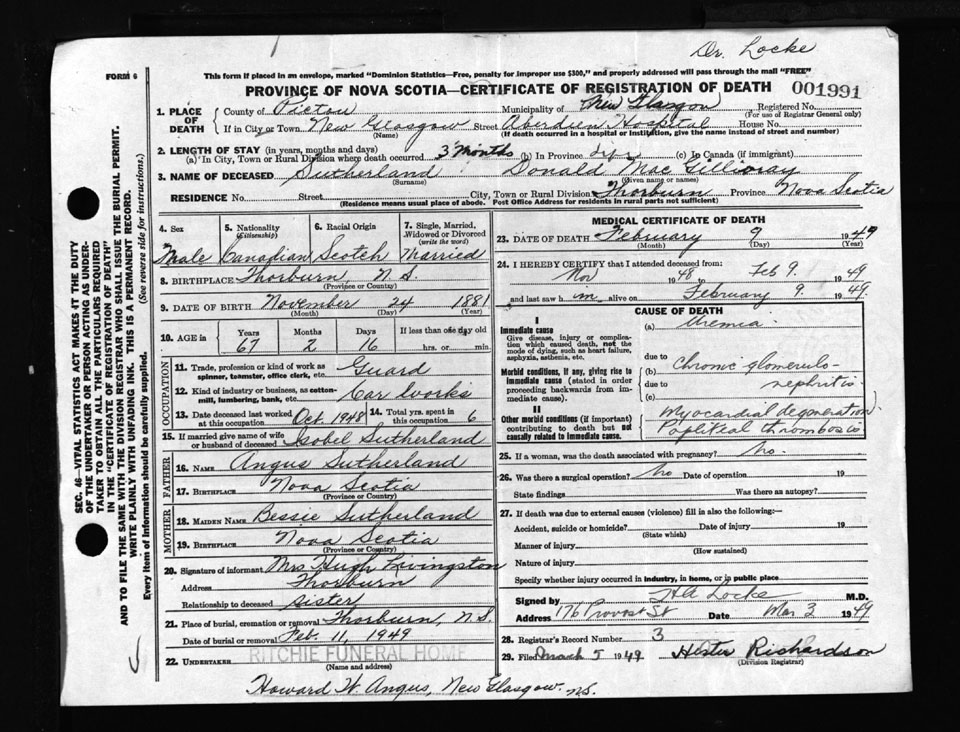 Dr. Locke
FORM 6
This form if placed in an envelope, marked "Dominion Statistics—Free, penalty for improper use $300," and properly addressed will pass through the mail "FREE"
PROVINCE OF NOVA SCOTIA—CERTIFICATE OF REGISTRATION OF DEATH 001991
1. PLACE OF DEATH
County of Pictou Municipality of New Glasgow Registered No.
(For use of Registrar General only)
If in City or Town New Glasgow Street Aberdeen Hospital House No.
(Name) (If death occurred in a hospital or institution, give the name instead of street and number)
2. LENGTH OF STAY (in years, months and days)
(a) In City, Town or Rural Division where death occurred 3 months (b) In Province life (c) In Canada (if immigrant)
3. NAME OF DECEASED Sutherland Donald MacGillivray
(Surname) (Given name or names)
RESIDENCE No. Street City, Town or Rural Division Thorburn Province Nova Scotia
(Residence means usual place of abode. Post Office Address for residents in rural parts not sufficient)
SEC. 46—VITAL STATISTICS ACT MAKES IT THE DUTY
OF THE UNDERTAKER OR PERSON ACTING AS UNDER-
TAKER TO OBTAIN ALL THE PARTICULARS REQUIRED
IN THE "CERTIFICATE OF REGISTRATION OF DEATH"
AND TO FILE THE SAME WITH THE DIVISION REGISTRAR WHO SHALL ISSUE THE BURIAL PERMIT.
WRITE PLAINLY WITH UNFADING INK. THIS IS A PERMANENT RECORD.
Every item of Information should be carefully supplied. (See reverse side for instructions.)
4. Sex
Male
5. Nationality
(Citizenship)
Canadian
6. Racial Origin
Scotch
7. Single, Married,
Widowed or Divorced
(write the word)
Married
8. BIRTHPLACE Thorburn N.S.
(Province or Country)
9. DATE OF BIRTH November 24 1881
(Month) (Day) (Year)
10. AGE in
Years Months Days If less than one day old
67 2 16 hrs. or min.
OCCUPATION
11. Trade, profession or kind of work as
spinner, teamster, office clerk, etc. Guard
12. Kind of industry or business, as cotton-
mill, lumbering, bank, etc. Car Works
13. Date deceased last worked
at this occupation Oct. 1948
14. Total yrs. spent in
this occupation 6
15. If married give name of wife
or husband of deceased Isobel Sutherland
FATHER
16. NAME Angus Sutherland
17. BIRTHPLACE Nova Scotia
(Province or Country)
MOTHER
18. MAIDEN NAME Bessie Sutherland
19. BIRTHPLACE Nova Scotia
(Province or Country)
20. Signature of informant Mrs Hugh Livingston
Address Thorburn
Relationship to deceased sister
21. Place of burial, cremation or removal Thorburn, N.S.
Date of burial or removal Feb. 11, 1949
22. UNDERTAKER RITCHIE FUNERAL HOME
(Name and address)
Howard W. Angus, New Glasgow. N.S.
MEDICAL CERTIFICATE OF DEATH
23. DATE OF DEATH February 9 1949
(Month) (Day) (Year)
24. I HEREBY CERTIFY that I attended deceased from:
Nov 1948 Feb 9. 1949
and last saw him alive on February 9. 1949.
CAUSE OF DEATH
I
Immediate cause
Give disease, injury or complica-
tion which caused death, not the
mode of dying, such as heart failure,
asphyxia, asthenia, etc.
(a) Uremia
due to
Morbid conditions, if any, giving rise to
immediate cause (stated in order
proceeding backwards from im-
mediate cause).
(b) Chronic glomerulo-
due to nephritis
(c)
II
Other morbid conditions (if important)
contributing to death but not
causally related to immediate cause.
Myocardial degeneration
Popliteal thrombosis
25. If a woman, was the death associated with pregnancy? no.
26. Was there a surgical operation? No Date of operation 19
State findings Was there an autopsy?
27. If death was due to external causes (violence) fill in also the following:—
Accident, suicide or homicide? Date of injury 19
(State which)
Manner of injury
(How sustained)
Nature of injury
Specify whether injury occurred in industry, in home, or in public place
Signed by HA Locke M.D.
Address 176 Provost St Date Mar 3 1949
28. Registrar's Record Number 3
29. Filed March 5 1949 Hester Richardson
(Division Registrar)